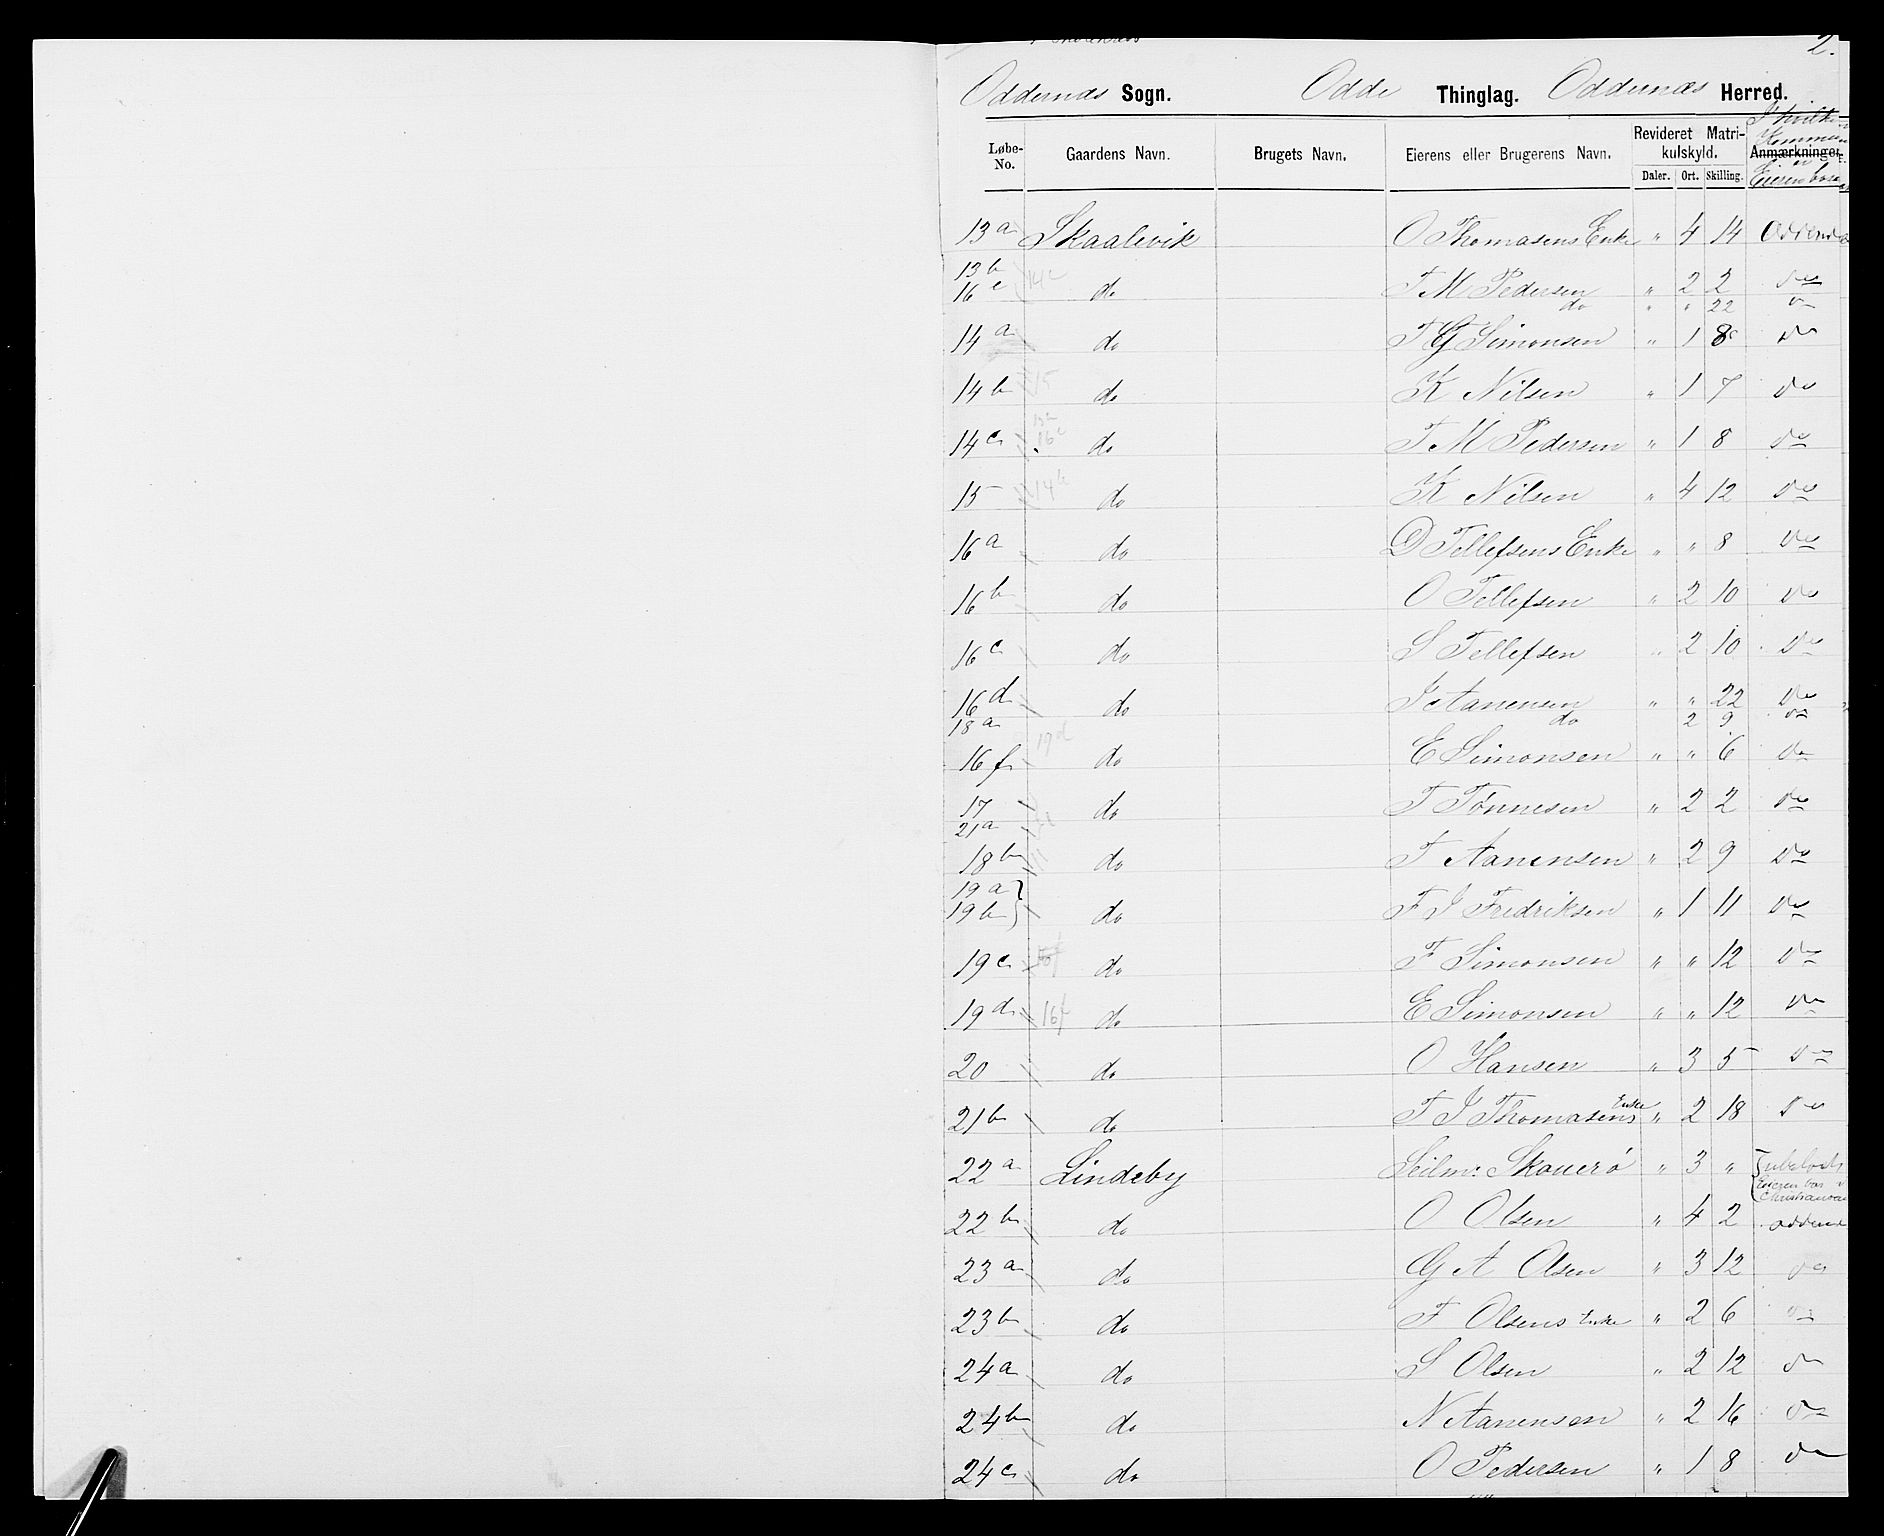 2.
Oddernæs Sogn. Odde Thinglag. Oddernæs Herred.
Løbe-No. Gaardens Navn. Brugets Navn. Eierens eller Brugerens Navn. Revideret Matrikulskyld. Anmærkninger.
Daler. Ort. Skilling.
13a Skaalevik O Thomasens Enke " 4 14
13b
16e do T M Pedersen " 2 2 do
do " " 22
14a do T G Simonsen " 1 8 do
14b 15 do K Nilsen " 1 7 do
14c 16e do T M Pedersen " 1 8 do
15 14b do K Nilsen " 4 12 do
16a do D Tellefsens Enke " " 8 do
16b do O Tellefsen " 2 10 do
16c do S Tellefsen " 2 10 do
16d do J Aanensen " " 22 do
18a do 2 9 do
16f 19d do E Simonsen " " 6 do
17 do T Tønnesen " 2 2 do
21a
18b do T Aanensen " 2 9 do
19a
19b do F J Fredriksen " 1 11 do
19c do F Simonsen " " 12 do
19d 16f do E Simonsen " " 12 do
20 do O Hansen " 3 5 do
21b do T J Thomasens Enke " 2 18 do
22a Lindeby Seilm: Skouerø " 3 "
Eieren bor i
22b do O Olsen " 4 2
23a do G A Olsen " 3 12 do
23b do F Olsens Enke " 2 6 do
24a do S Olsen " 2 12 do
24b do N Aanensen " 2 16 do
24c do O Pedersen " 1 8 do